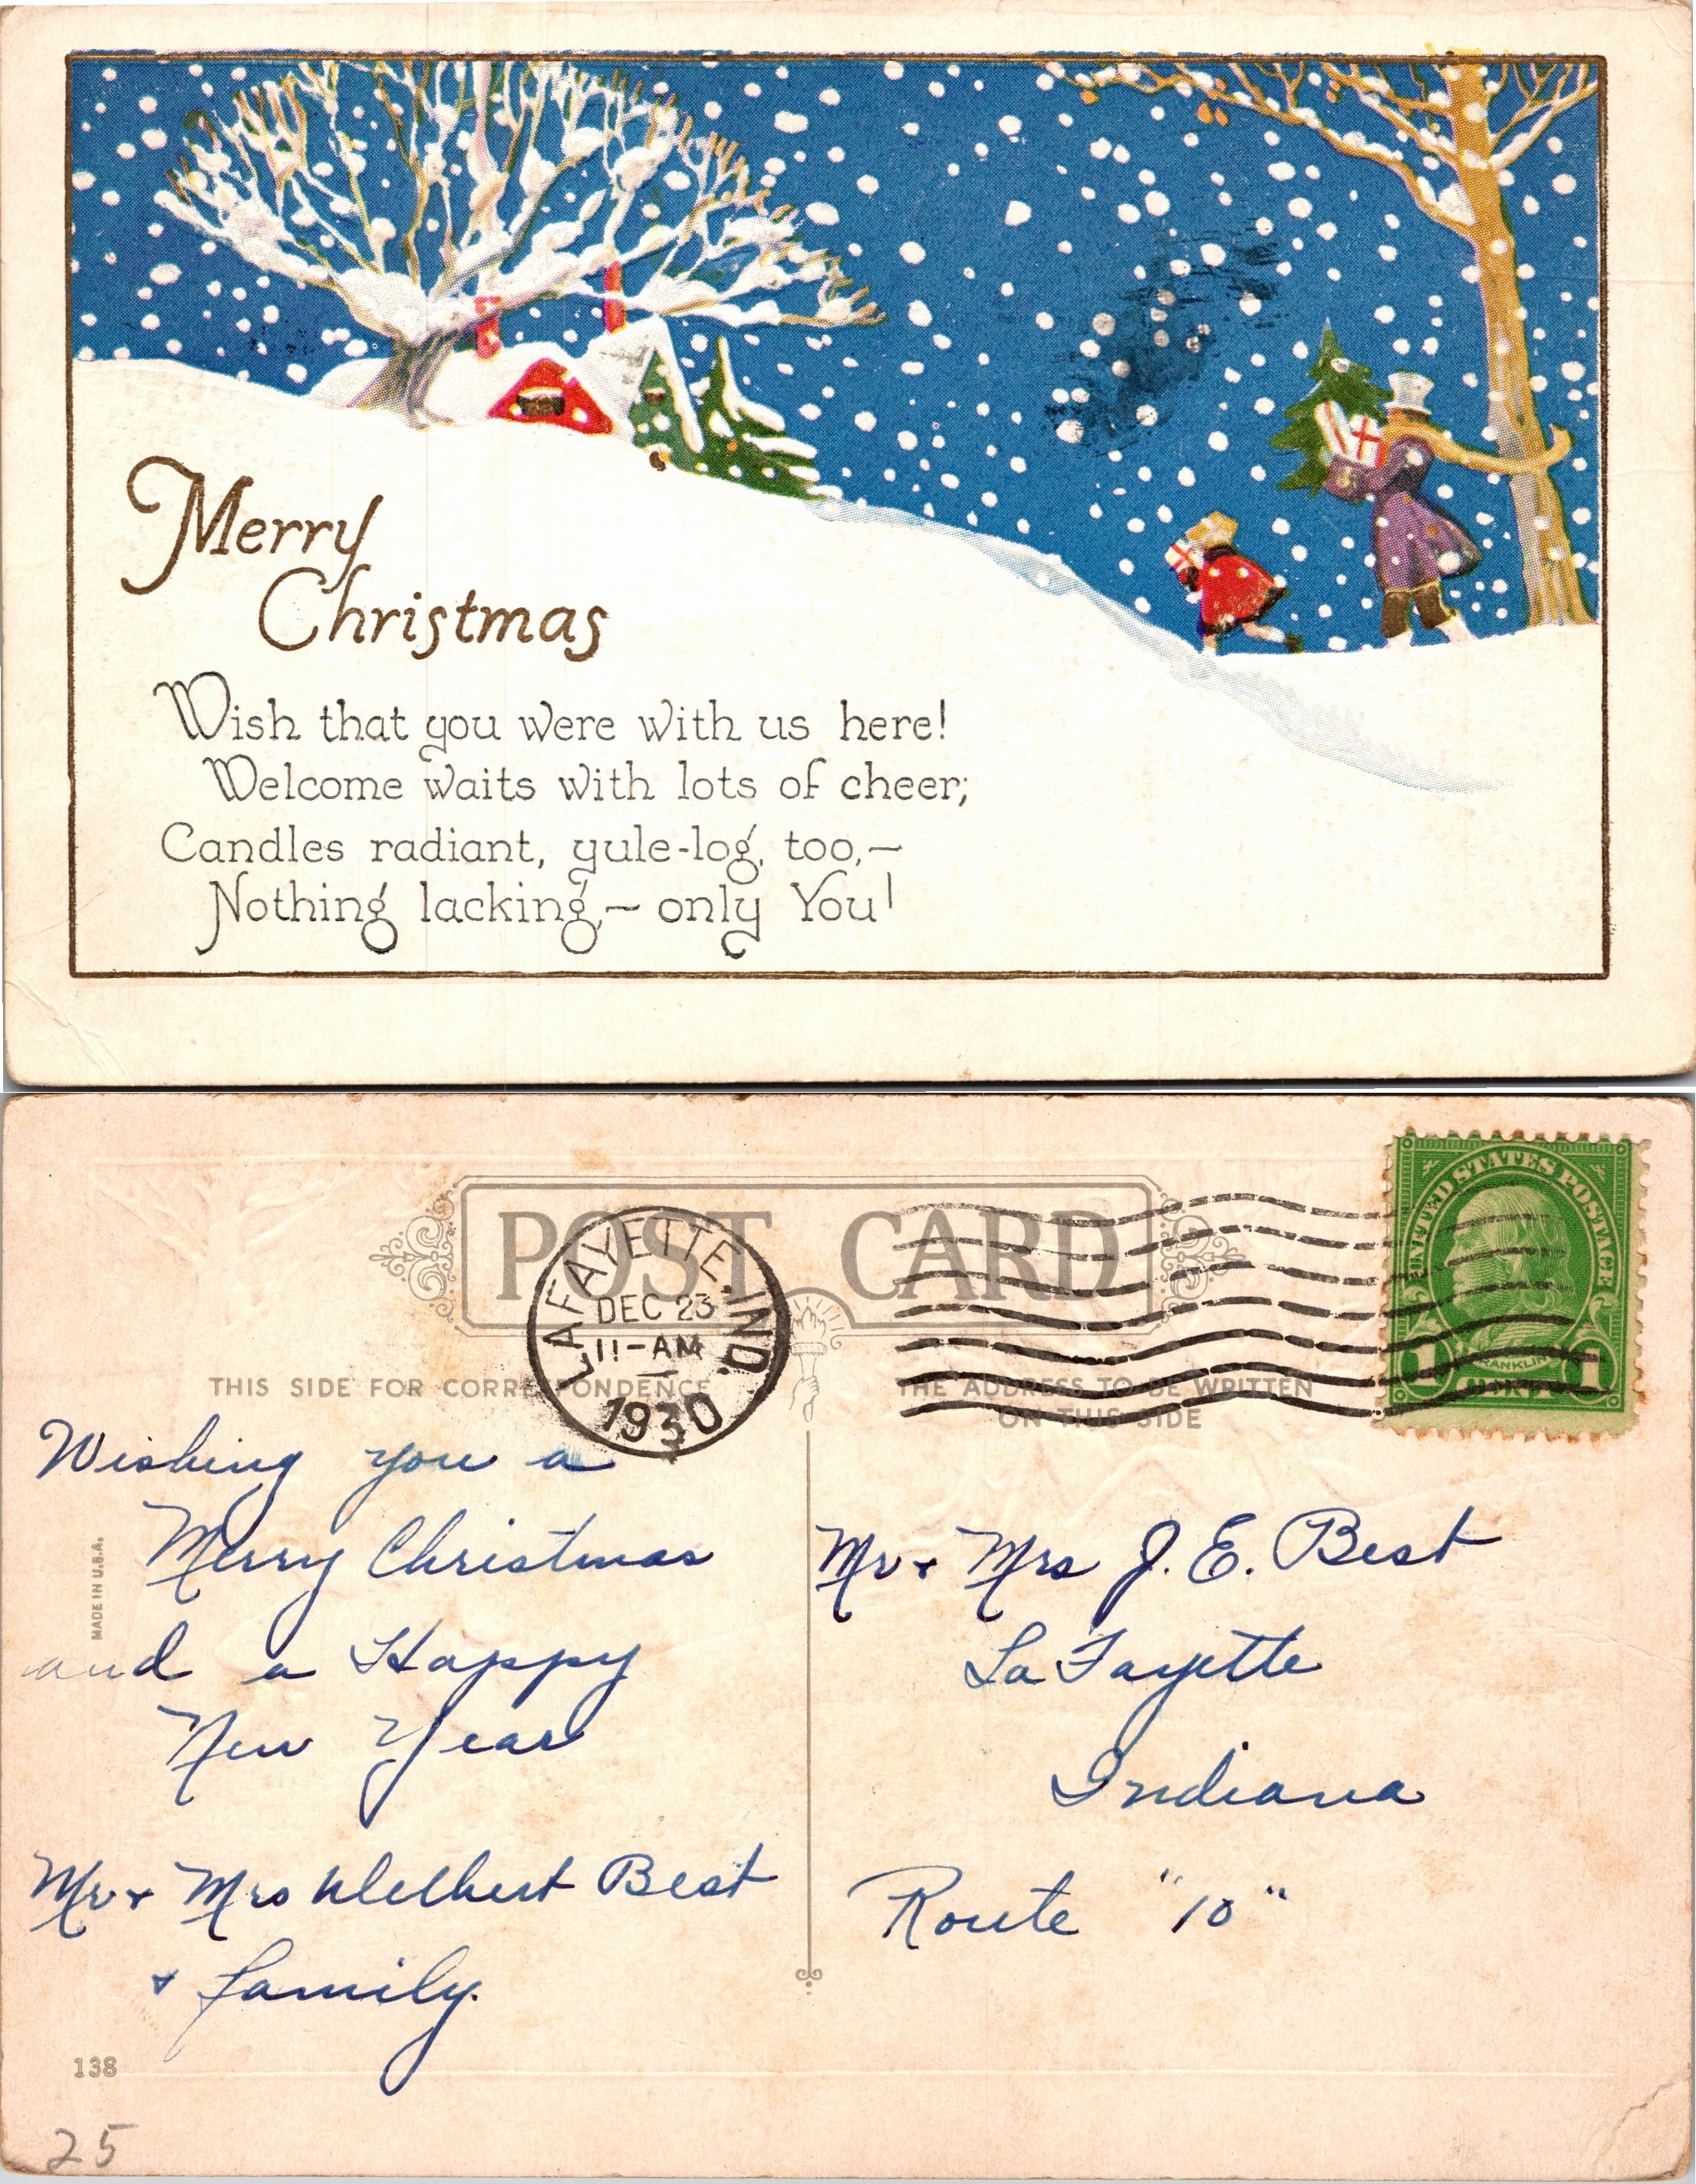 Merry
Christmas
Wish that you were with us here!
Welcome waits with lots of cheer;
Candles radiant, yule-log, too,—
Nothing lacking,— only You!
POST CARD
UNITED STATES POSTAGE
FRANKLIN
1 1
LAFAYETTE, IND.
DEC 23
11-AM
1930
THIS SIDE FOR CORRESPONDENCE
THE ADDRESS TO BE WRITTEN
ON THIS SIDE
MADE IN U.S.A.
Wishing you a
Merry Christmas
and a Happy
New Year
Mr + Mrs Best
+ family.
Mr + Mrs J. E. Best
La Fayette
Indiana
Route "10"
138
25